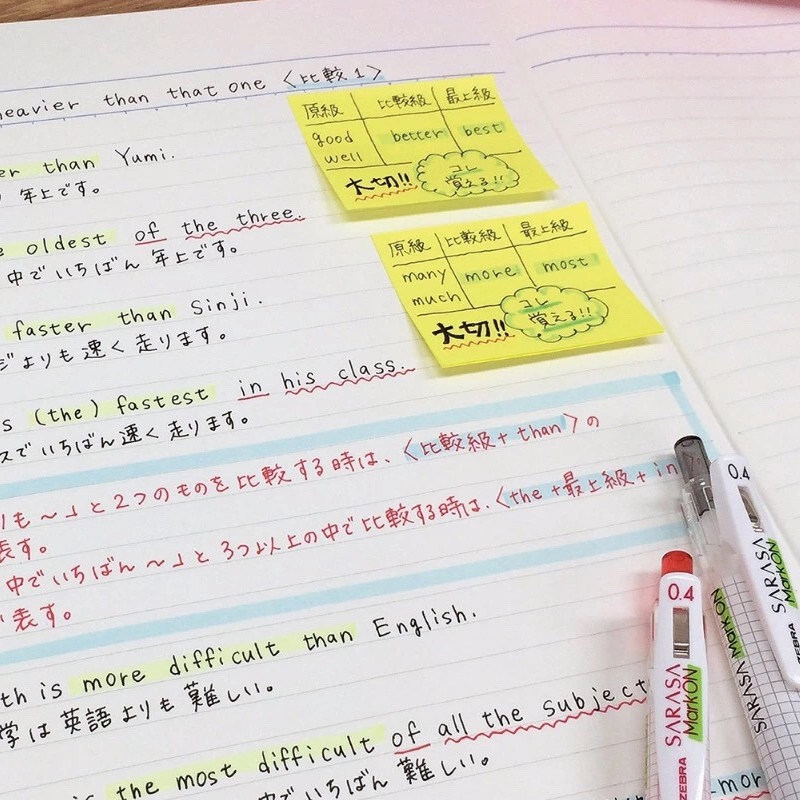 heavier than that one 〈比較1〉
than Yumi.
年上です。
oldest of the three.
中でいちばん年上です。
faster than Sinji.
よりも速く走ります。
(the) fastest in his class.
スでいちばん速く走ります。
原級 比較級 最上級
good better best
well
大切!! コレ
覚える!!
原級 比較級 最上級
many more most
much
大切!! コレ
覚える!!
も〜」と2つのものを比較する時は、〈比較級+than〉の
表す。
中でいちばん〜」と3つ以上の中で比較する時は、〈the+最上級+in
表す。
is more difficult than English.
学は英語よりも難しい。
is the most difficult of all the subject
でいちばん難しい。
0.4
SARASA
MarkON
ZEBRA
0.4
SARASA
MarkON
ZEBRA
SARASA MarkON